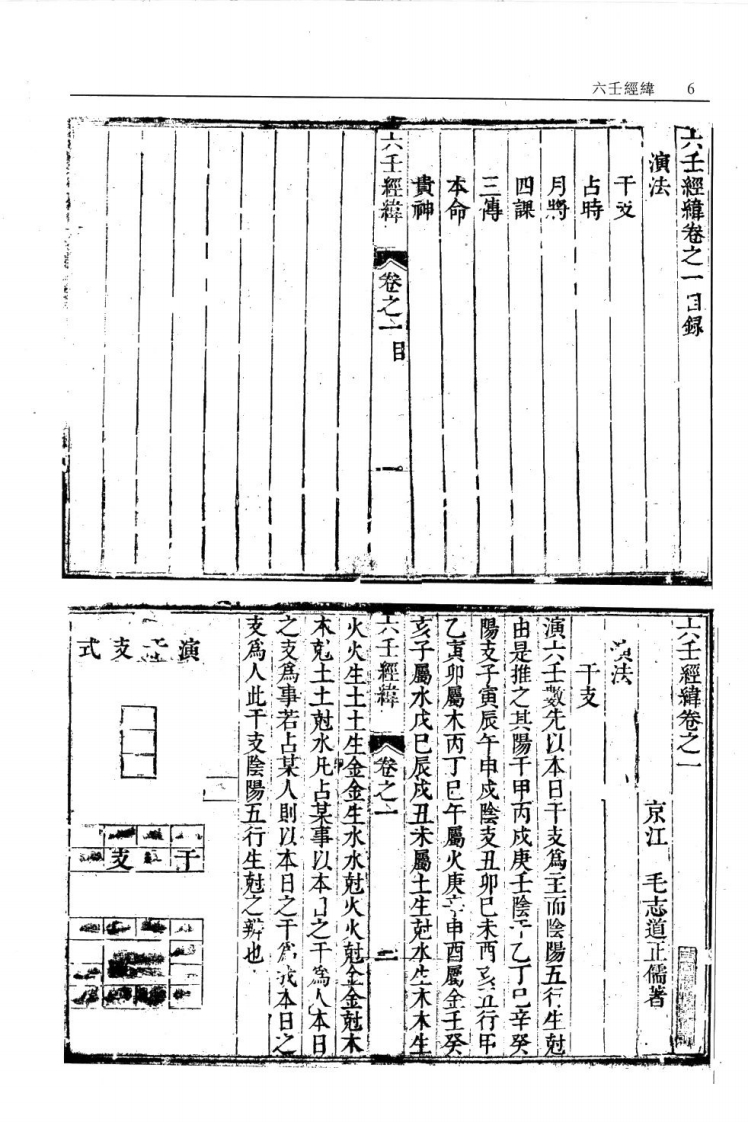 六壬經緯 6
六壬經緯卷之一目録
演法
干支
占時
月將
四課
三傳
本命
貴神
六壬經緯 卷之一目 一
六壬經緯卷之一
京江 毛志道正儒著
演法
干支
演六壬數先以本日干支爲主而陰陽五行生尅
由是推之其陽干甲丙戊庚壬陰干乙丁己辛癸
陽支子寅辰午申戌陰支丑卯巳未酉亥五行甲
乙寅卯屬木丙丁巳午屬火庚辛申酉屬金壬癸
亥子屬水戊己辰戌丑未屬土生尅水生木木生
火火生土土生金金生水水尅火火尅金金尅木
木尅土土尅水凡占某事以本日之干爲人本日
六壬經緯 卷之一 二
之支爲事若占某人則以本日之干爲我本日之
支爲人此干支陰陽五行生尅之辨也
演干支式
干 支